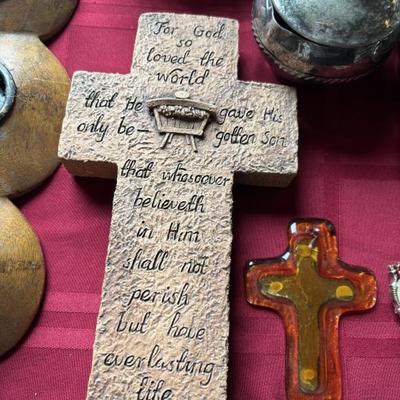 For God
so
loved the
world
that He gave His
only be- gotten Son
that whosoever
believeth
in Him
shall not
perish
but have
everlasting
life